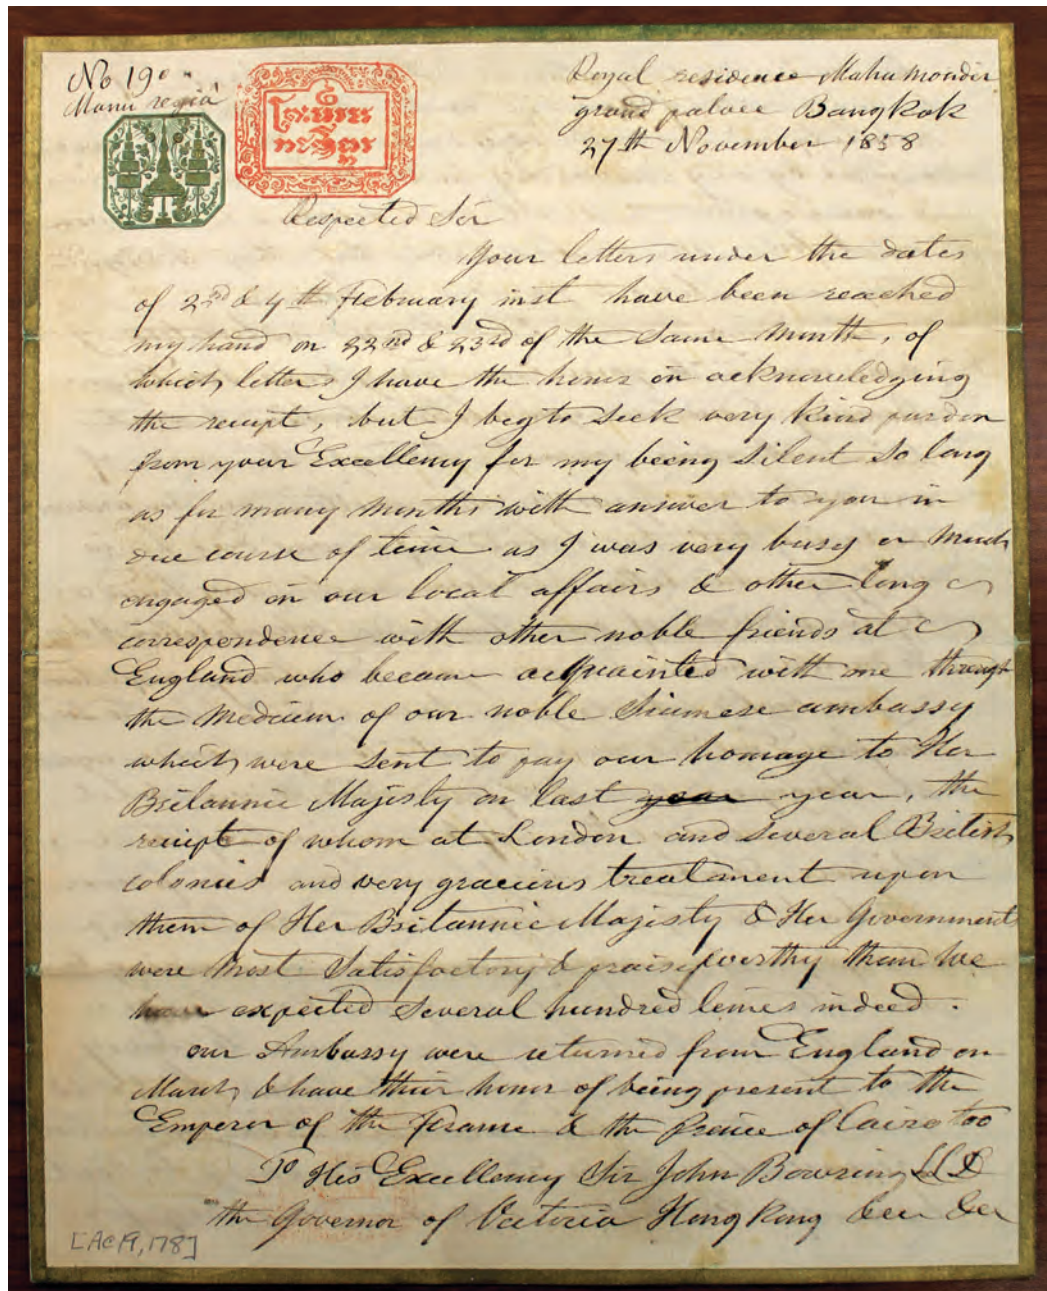 No 190
Manu regiâ
Royal residence Maha Mondir
grand palace Bangkok
27th November 1858
Respected Sir
Your letters under the dates
of 2nd & 4th February inst have been reached
my hand on 22nd & 23rd of the same month, of
which letters I have the honor in acknowledging
the receipt, but I beg to seek very kind pardon
from your Excellency for my being silent so long
as for many months with answer to you in
due course of time as I was very busy or much
engaged in our local affairs & other long
correspondence with other noble friends at
England who became acquainted with me through
the medium of our noble Siamese ambassy
which were sent to pay our homage to Her
Britannic Majesty on last year year, the
receipt of whom at London and several British
colonies and very gracious treatment upon
them of Her Britannic Majesty & Her Government
were most Satisfactory & praiseworthy than we
have expected several hundred times indeed.
our Ambassy were returned from England on
March & have their honor of being present to the
Emperor of the France & the Prince of Cairo too
To His Excellency Sir John Bowring LLD
the Governor of Victoria Hong Kong &c &c
[AC19,178]